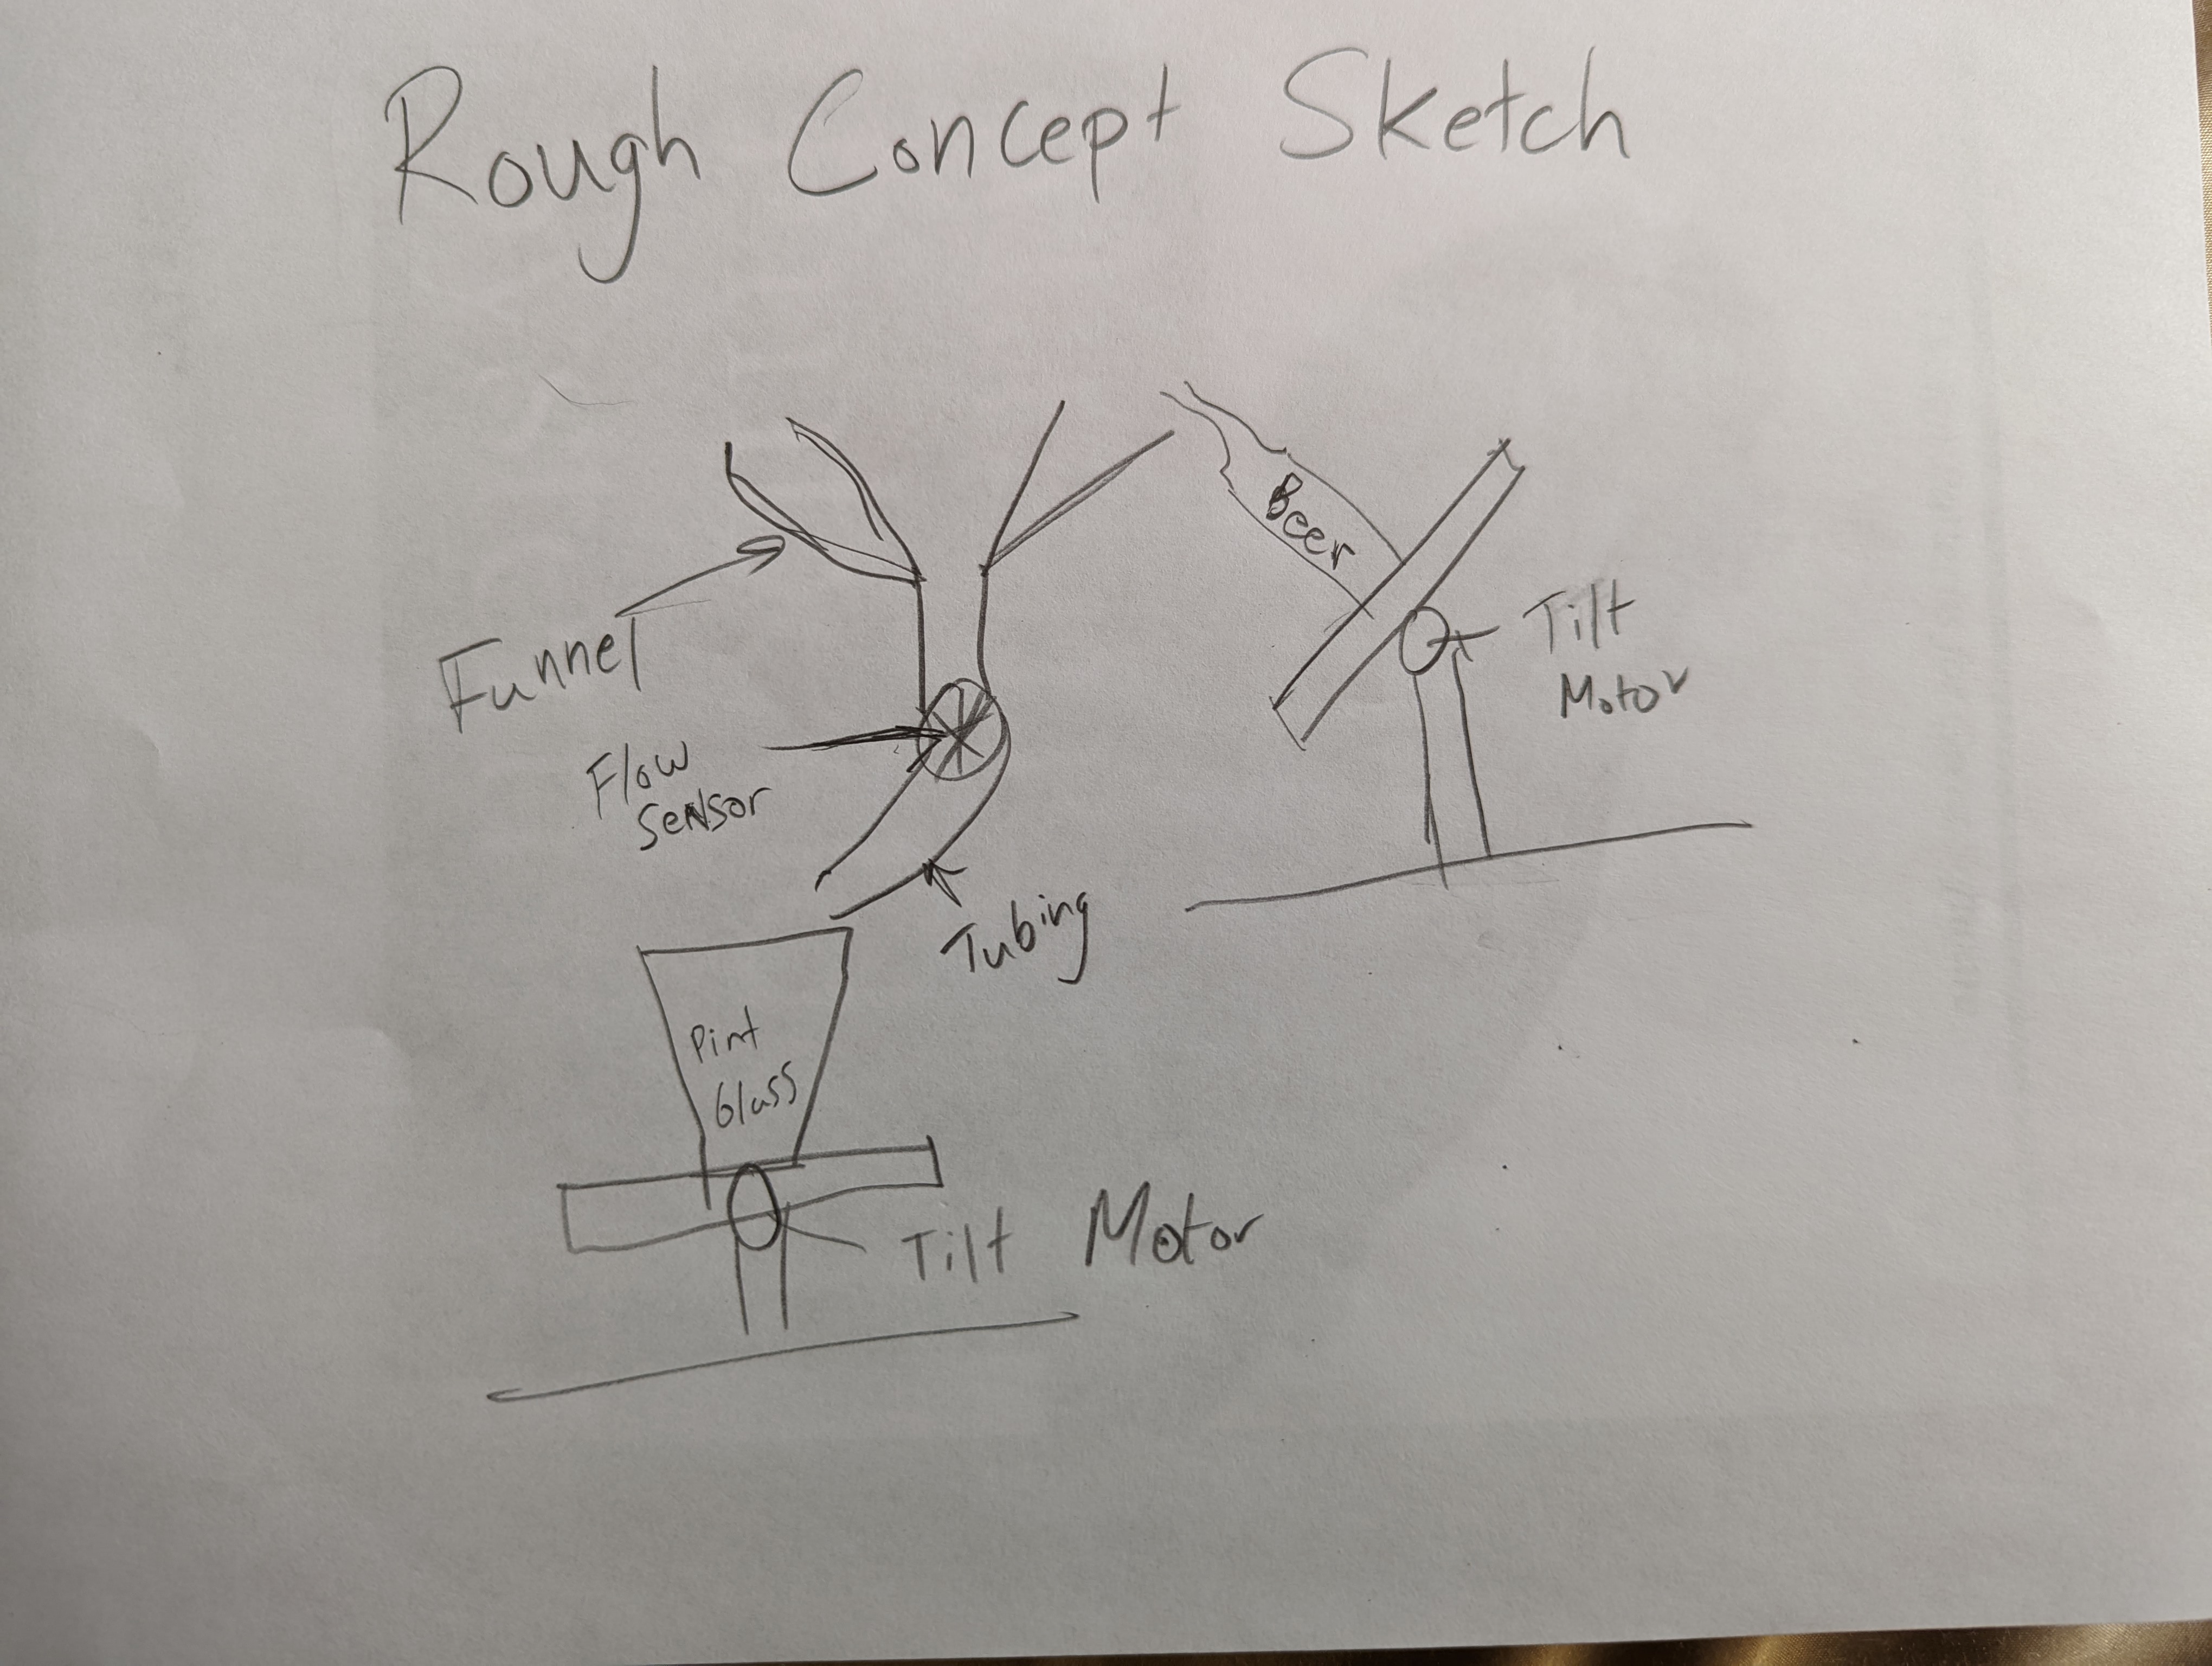 Rough Concept Sketch
Beer
Tilt
Motor
Funnel
Flow
Sensor
Tubing
Pint
Glass
Tilt Motor